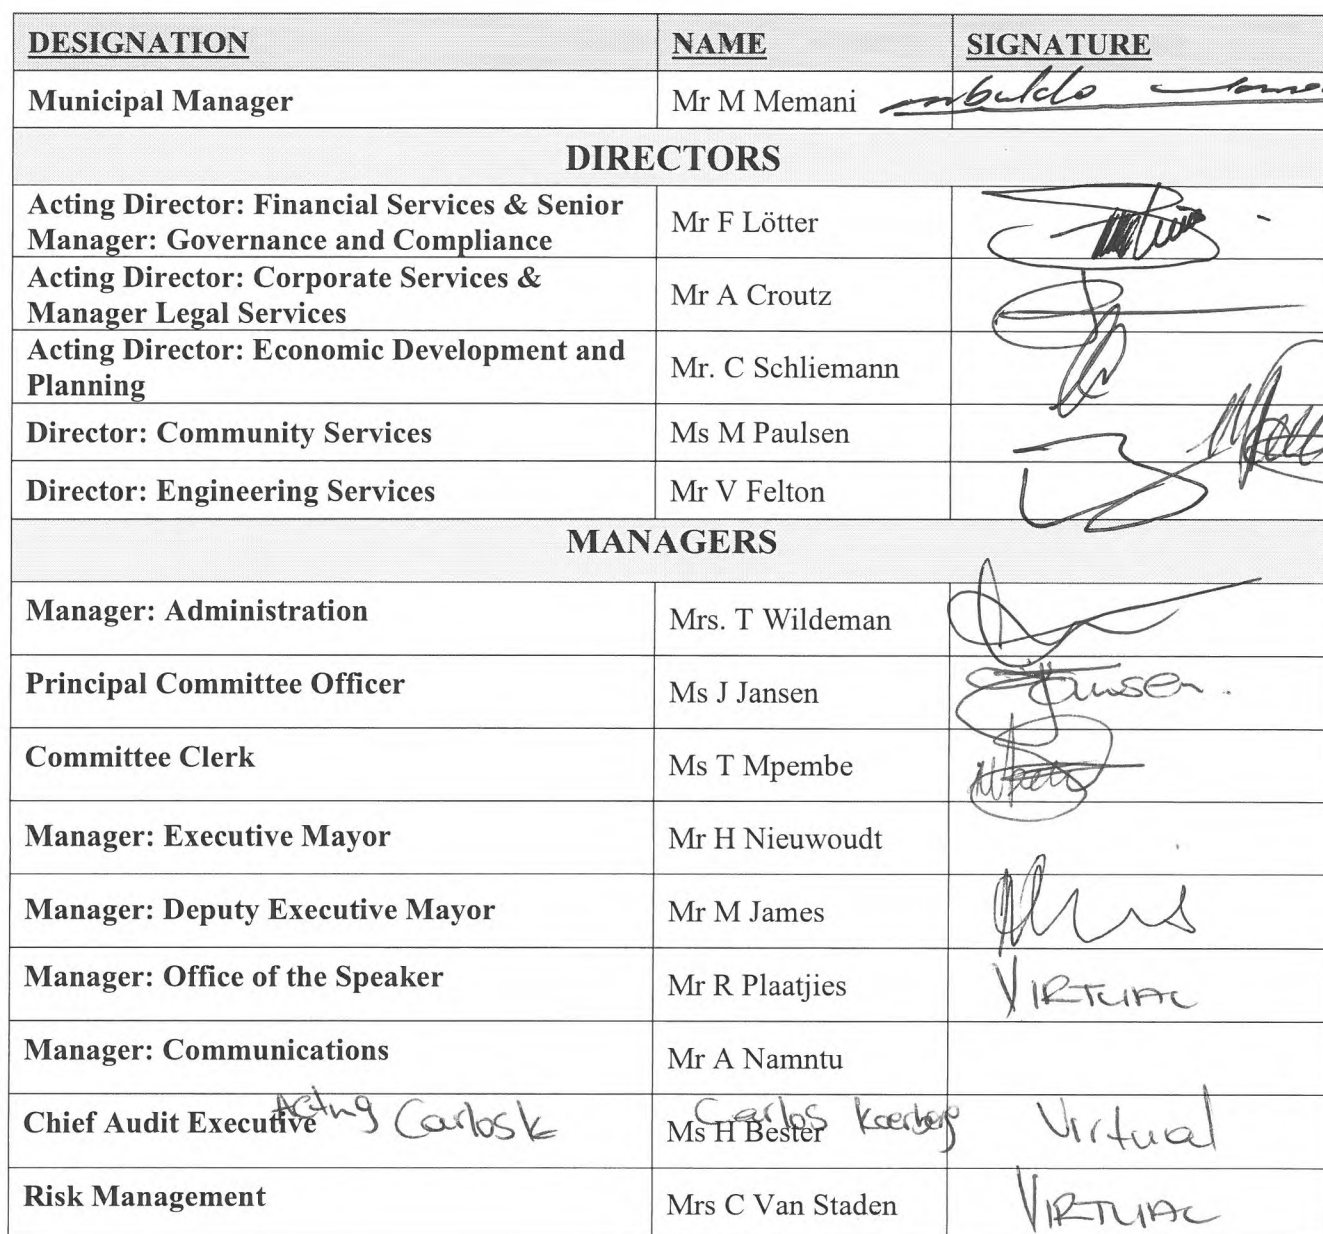 DESIGNATION NAME SIGNATURE
Municipal Manager Mr M Memani
DIRECTORS
Acting Director: Financial Services & Senior
Manager: Governance and Compliance Mr F Lötter
Acting Director: Corporate Services &
Manager Legal Services Mr A Croutz
Acting Director: Economic Development and
Planning Mr. C Schliemann
Director: Community Services Ms M Paulsen
Director: Engineering Services Mr V Felton
MANAGERS
Manager: Administration Mrs. T Wildeman
Principal Committee Officer Ms J Jansen Jansen.
Committee Clerk Ms T Mpembe
Manager: Executive Mayor Mr H Nieuwoudt
Manager: Deputy Executive Mayor Mr M James
Manager: Office of the Speaker Mr R Plaatjies VIRTUAL
Manager: Communications Mr A Namntu
Chief Audit Executive Acting Carlos K Ms H Bester Carlos Virtual
Risk Management Mrs C Van Staden VIRTUAL